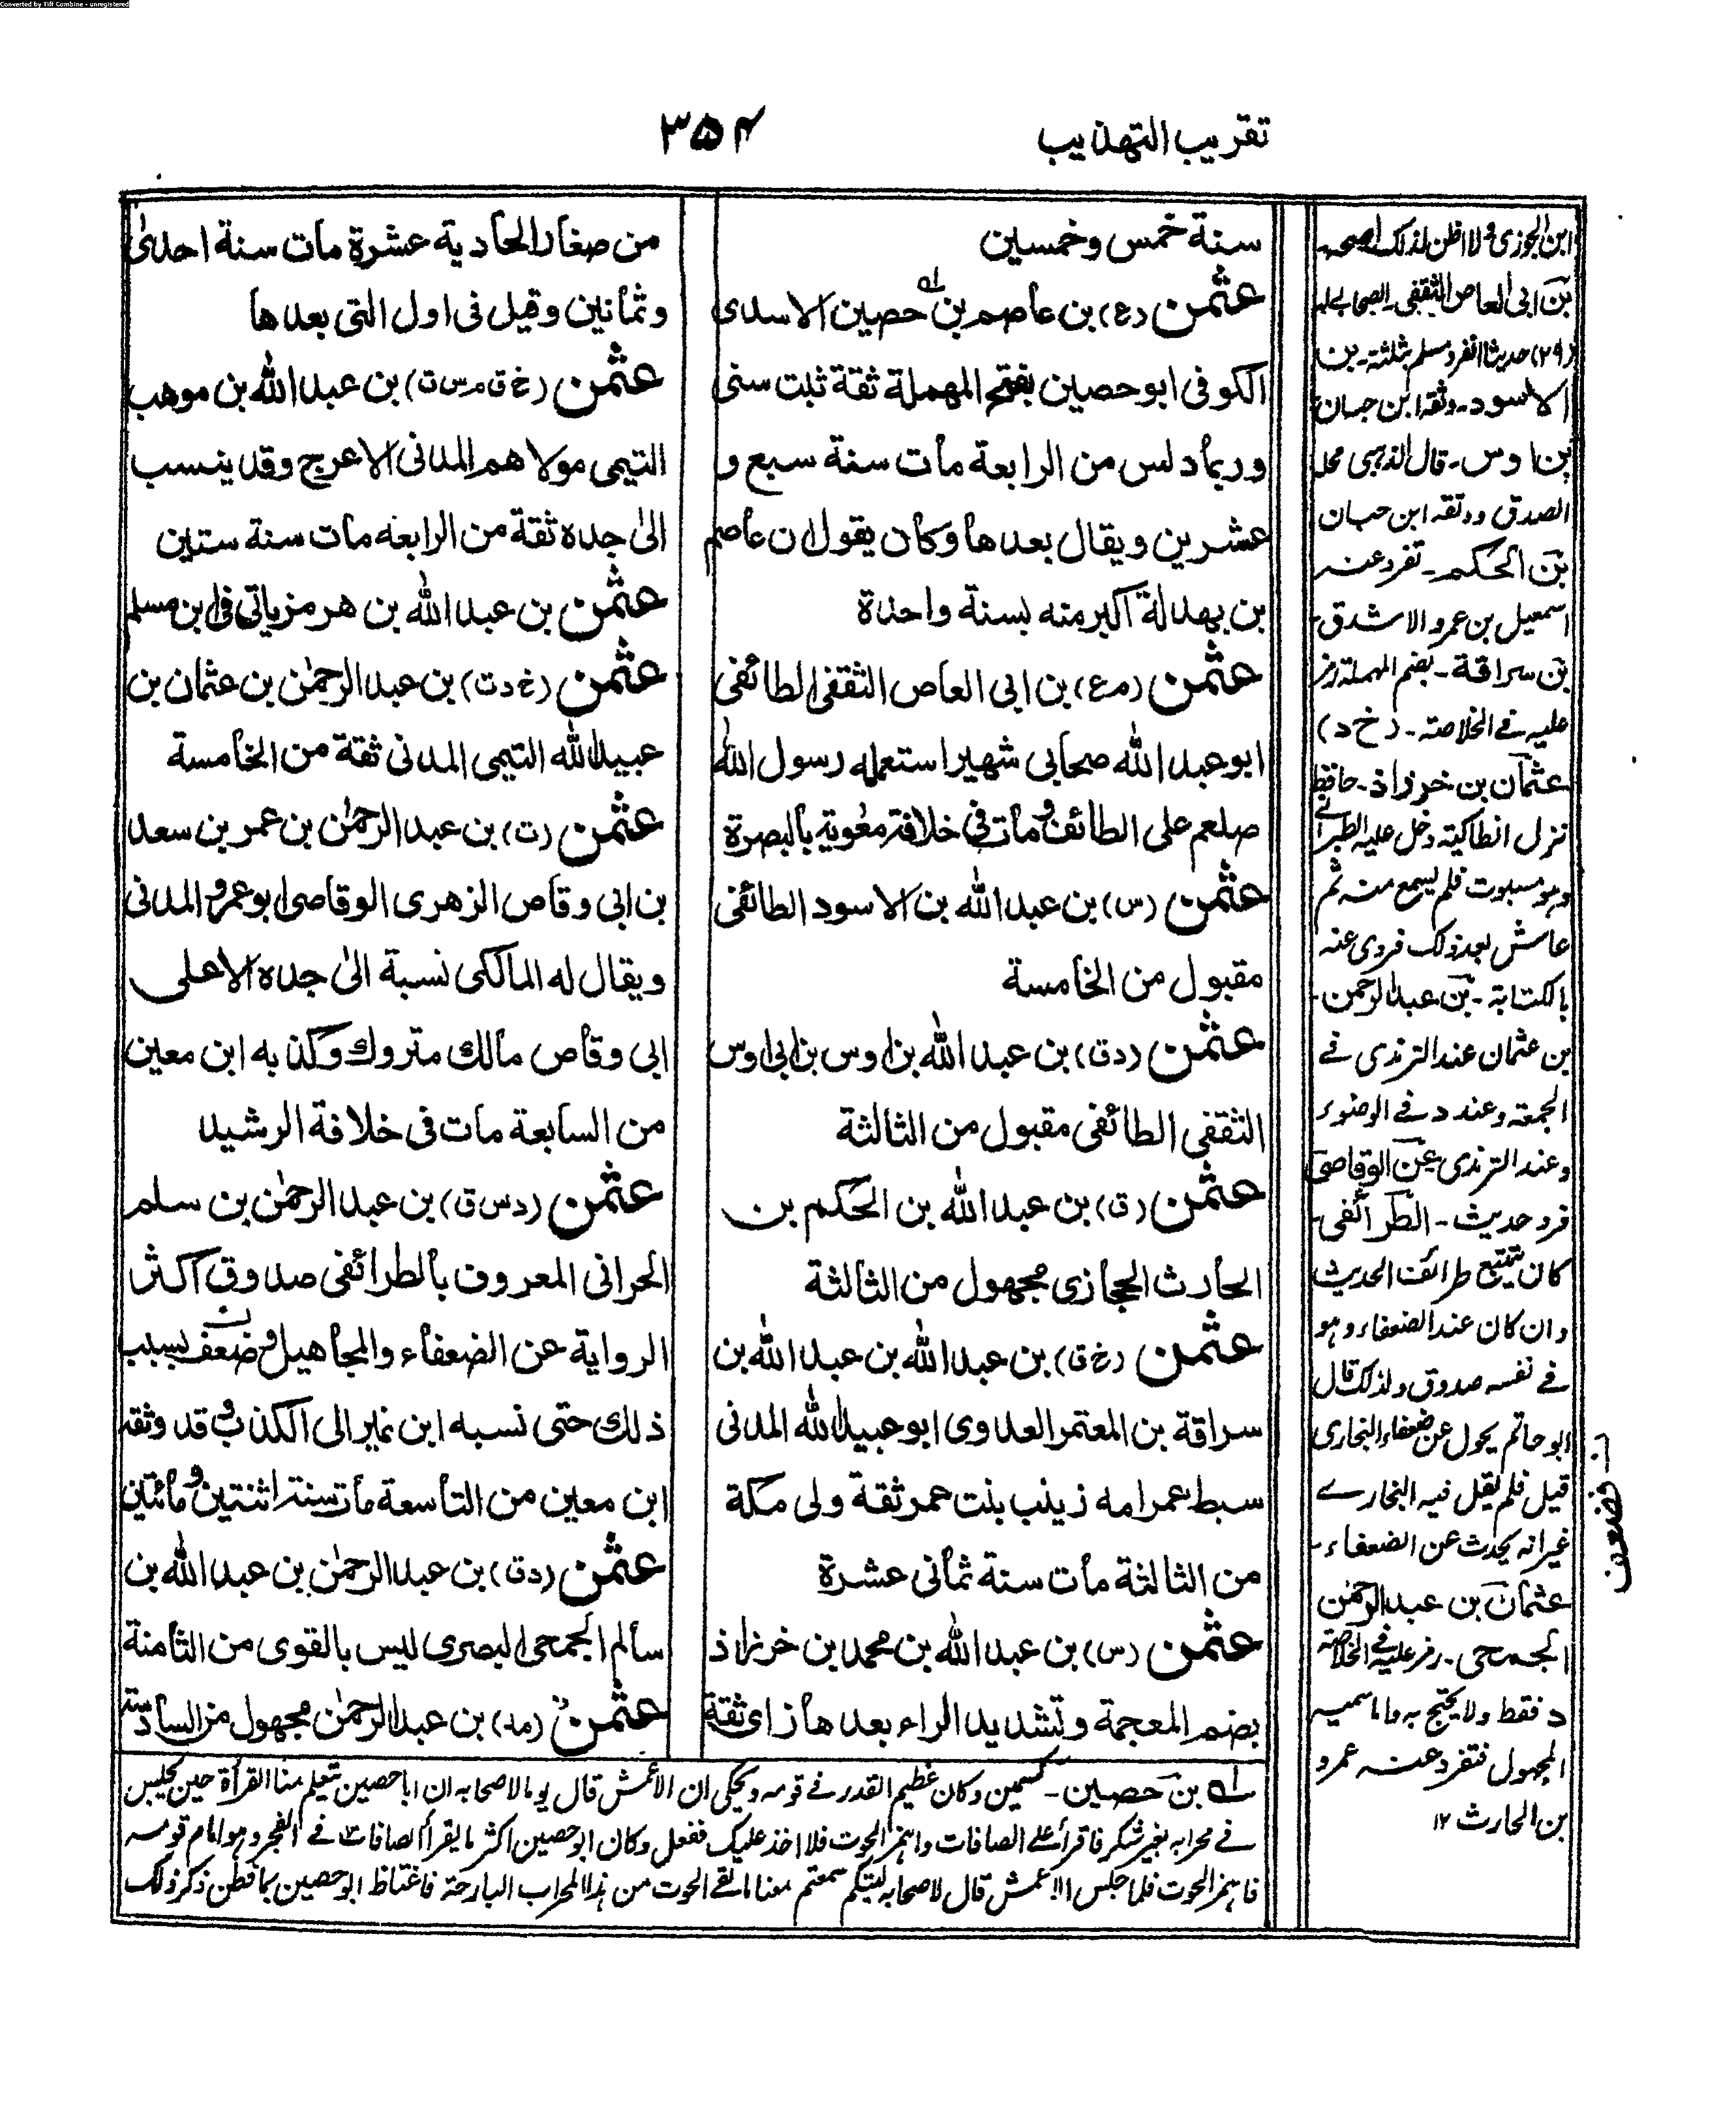 Converted by Tiff Combine - unregistered
تقريب التهذيب
۳۵۴
سنة خمس وخمسين
عثمن (ع) بن عاصم بن حصين الاسدى
الكوفى ابو حصين بفتح المهملة ثقة ثبت سنى
وربما دلس من الرابعة مات سنة سبع و
عشرين ويقال بعدها وكان يقول ان عاصم
بن بهدلة اكبر منه بسنة واحدة
عثمن (م ع) بن ابى العاص الثقفى الطائفى
ابو عبد الله صحابى شهير استعمله رسول الله
صلعم على الطائف ومات فى خلافة معوية بالبصرة
عثمن (س) بن عبد الله بن الاسود الطائفى
مقبول من الخامسة
عثمن (د ق) بن عبد الله بن اوس بن ابى اوس
الثقفى الطائفى مقبول من الثالثة
عثمن (ق) بن عبد الله بن الحكم بن
الحارث الحجازى مجهول من الثالثة
عثمن (خ ق) بن عبد الله بن عبد الله بن
سراقة بن المعتمر العدوى ابو عبيد الله المدنى
سبط عمر امه زينب بنت عمر ثقة ولى مكة
من الثالثة مات سنة ثمانى عشرة
عثمن (س) بن عبد الله بن محمد بن خرزاذ
بضم المعجمة وتشديد الراء بعدها زاى ثقة
من صغار الحادية عشرة مات سنة احدىٰ
وثمانين وقيل فى اول التى بعدها
عثمن (خ ق م س ت) بن عبد الله بن موهب
التيمى مولاهم المدنى الاعرج وقد ينسب
الىٰ جده ثقة من الرابعه مات سنة ستين
عثمن بن عبد الله بن هرمز ياتى فى ابن مسلم
عثمن (خ د ت) بن عبد الرحمٰن بن عثمان بن
عبيد الله التيمى المدنى ثقة من الخامسة
عثمن (ت) بن عبد الرحمٰن بن عمر بن سعد
بن ابى وقاص الزهرى الوقاصى ابو عمرو المدنى
ويقال له المالكى نسبة الىٰ جده الاعلى
ابى وقاص مالك متروك وكذبه ابن معين
من السابعة مات فى خلافة الرشيد
عثمن (د س ق) بن عبد الرحمٰن بن سلم
الحرانى المعروف بالطرائفى صدوق اكثر
الرواية عن الضعفاء والمجاهيل وضعف بسبب
ذلك حتى نسبه ابن نمير الى الكذب وقد وثقه
ابن معين من التاسعة مات سنة اثنتين ومائتين
عثمن (د ق) بن عبد الرحمٰن بن عبد الله بن
سالم الجمحى البصرى ليس بالقوى من الثامنة
عثمن (مد) بن عبد الرحمٰن مجهول من السادسة
ابن الجوزى ولا اظن لذلك اصحه
بن ابى العاص الثقفى ـ الصحابى له
(۲۹) حديثا انفرد مسلم بثلثة ـ بن
الاسود ـ وثقه ابن حبان
بن اوس ـ قال الذهبى محله
الصدق ووثقه ابن حبان
بن الحكم ـ تفرد عنه
اسمعيل بن عمرو الاشدق ـ
بن سراقة ـ بضم المهملة رمز
عليه فى الخلاصة ـ (خ د)
عثمان بن خرزاذ ـ حافظ
نزل انطاكية دخل عليه الطبرانى
وهو مسبوت فلم يسمع منه ثم
عاش بعد ذلك فروى عنه
بالكتابة ـ بن عبد الرحمن ـ
بن عثمان عند الترمذى فى
الجمعة وعند د فى الوضوء
وعند الترمذى عن الوقاصى
فرد حديث ـ الطرائفى ـ
كان يتتبع طرائف الحديث
وان كان عند الضعفاء وهو
فى نفسه صدوق ولذلك قال
ابو حاتم يحول عن ضعفاء البخارى
قيل فلم يقل فيه البخارى
غير انه يحدث عن الضعفاء ـ
عثمان بن عبد الرحمٰن
الجمحى ـ رمز عليه فى الخلاصة
د فقط ولا يحتج به واما سميه
المجهول فتفرد عنه عمرو
بن الحارث ۱۲
فضعف
له بن حصين ـ وكان عظيم القدر فى قومه ويحكى ان الاعمش قال يوما لاصحابه ان ابا حصين يتعلم منا القرأة حين يجلس
فى محرابه بغير شكر فاقرأ على الصافات واهمز الحوت فلا اخذ عليك ففعل وكان ابو حصين اكثر ما يقرأ الصافات فى الفجر وهو امام قومه
فاهمز الحوت فلما جلس الاعمش قال لاصحابه ليتكم سمعتم معنا ما لقى الحوت من هذا المحراب البارحة فاغتاظ ابو حصين بما فطن ذكر ذلك